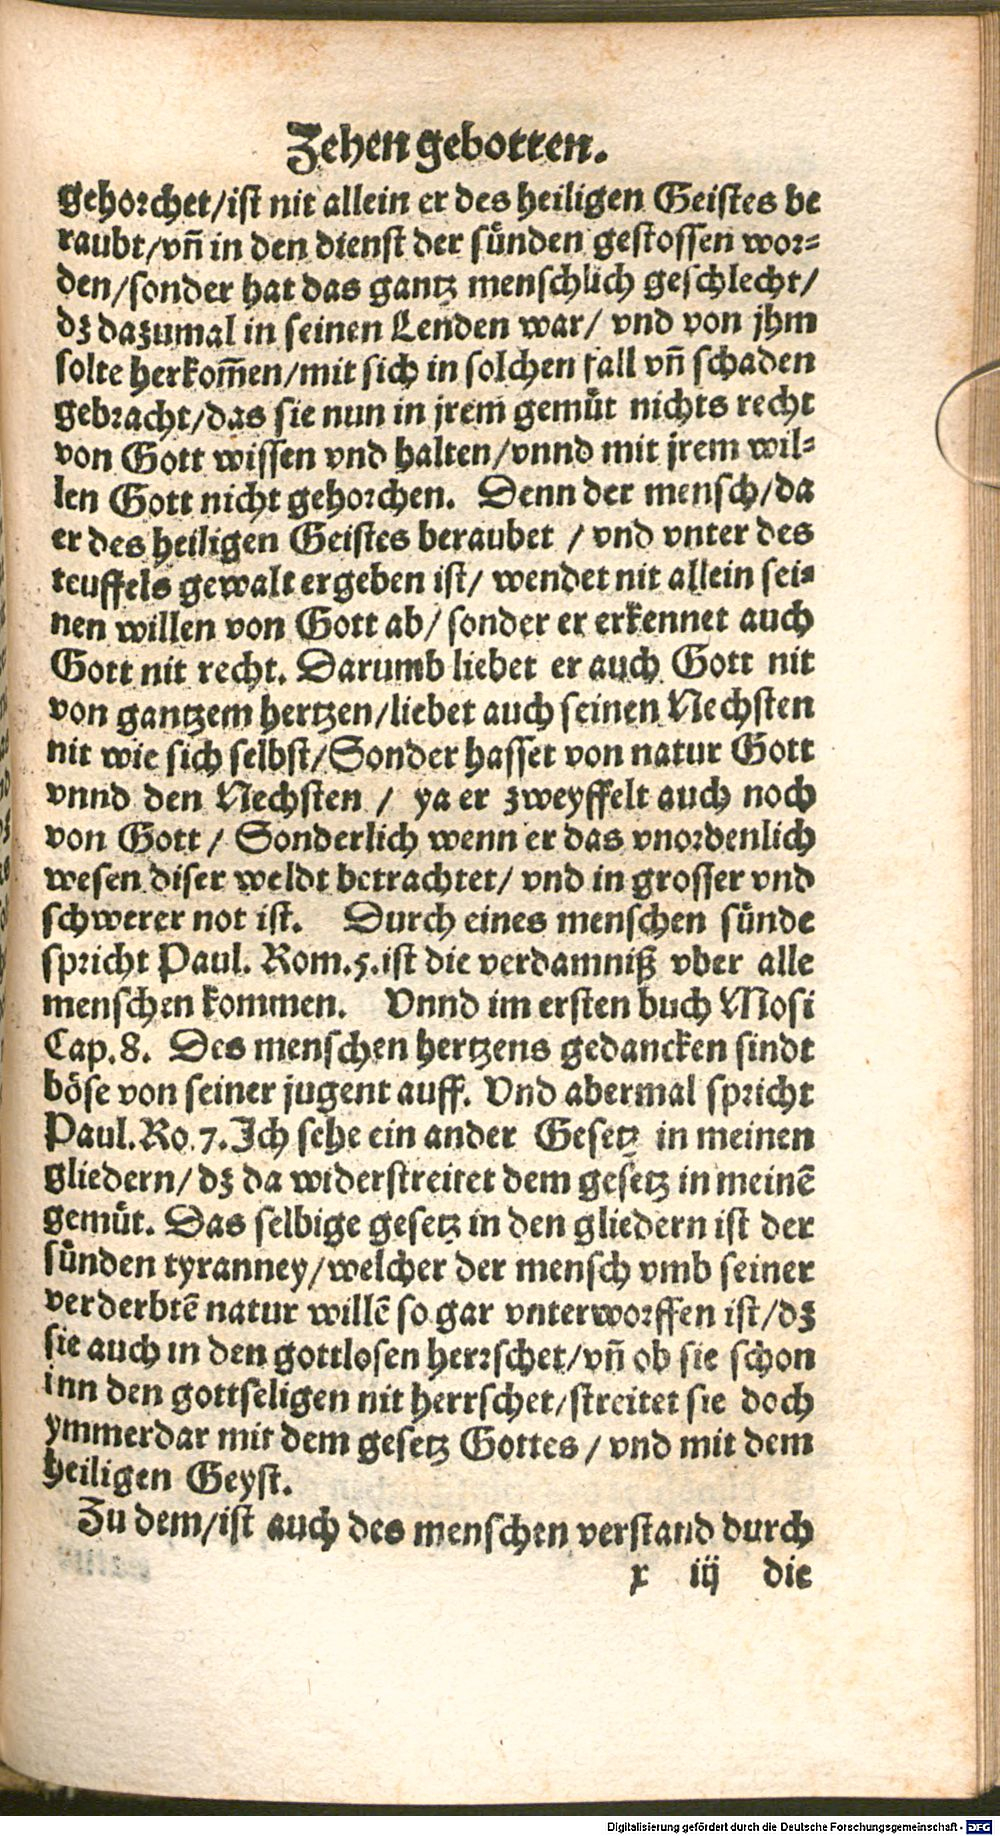 Zehen gebotten.
gehorchet/ist nit allein er des heiligen Geistes be
raubt/vn̄ in den dienst der sünden gestossen wor⸗
den/sonder hat das gantz menschlich geschlecht/
dz dazumal in seinen Lenden war/ vnd von jhm
solte herkom̄en/mit sich in solchen fall vn̄ schaden
gebracht/das sie nun in jrem gemüt nichts recht
von Gott wissen vnd halten/vnnd mit jrem wil⸗
len Gott nicht gehorchen. Denn der mensch/da
er des heiligen Geistes beraubet / vnd vnter des
teuffels gewalt ergeben ist/ wendet nit allein sei⸗
nen willen von Gott ab/ sonder er erkennet auch
Gott nit recht. Darumb liebet er auch Gott nit
von gantzem hertzen/liebet auch seinen Nechsten
nit wie sich selbst/Sonder hasset von natur Gott
vnnd den Nechsten / ya er zweyffelt auch noch
von Gott / Sonderlich wenn er das vnordenlich
wesen diser weldt betrachtet/ vnd in grosser vnd
schwerer not ist. Durch eines menschen sünde
spricht Paul. Rom.5.ist die verdamniß vber alle
menschen kommen. Vnnd im ersten buch Mosi
Cap.8. Des menschen hertzens gedancken sindt
böse von seiner jugent auff. Vnd abermal spricht
Paul.Ro.7.Ich sehe ein ander Gesetz in meinen
gliedern/ dz da widerstreitet dem gesetz in meinē
gemüt. Das selbige gesetz in den gliedern ist der
sünden tyranney/welcher der mensch vmb seiner
verderbtē natur willē so gar vnterworffen ist/dz
sie auch in den gottlosen herrschet/vn̄ ob sie schon
inn den gottseligen nit herrschet/streitet sie doch
ymmerdar mit dem gesetz Gottes / vnd mit dem
heiligen Geyst.
Zu dem/ist auch des menschen verstand durch
x iij die
Digitalisierung gefördert durch die Deutsche Forschungsgemeinschaft - DFG